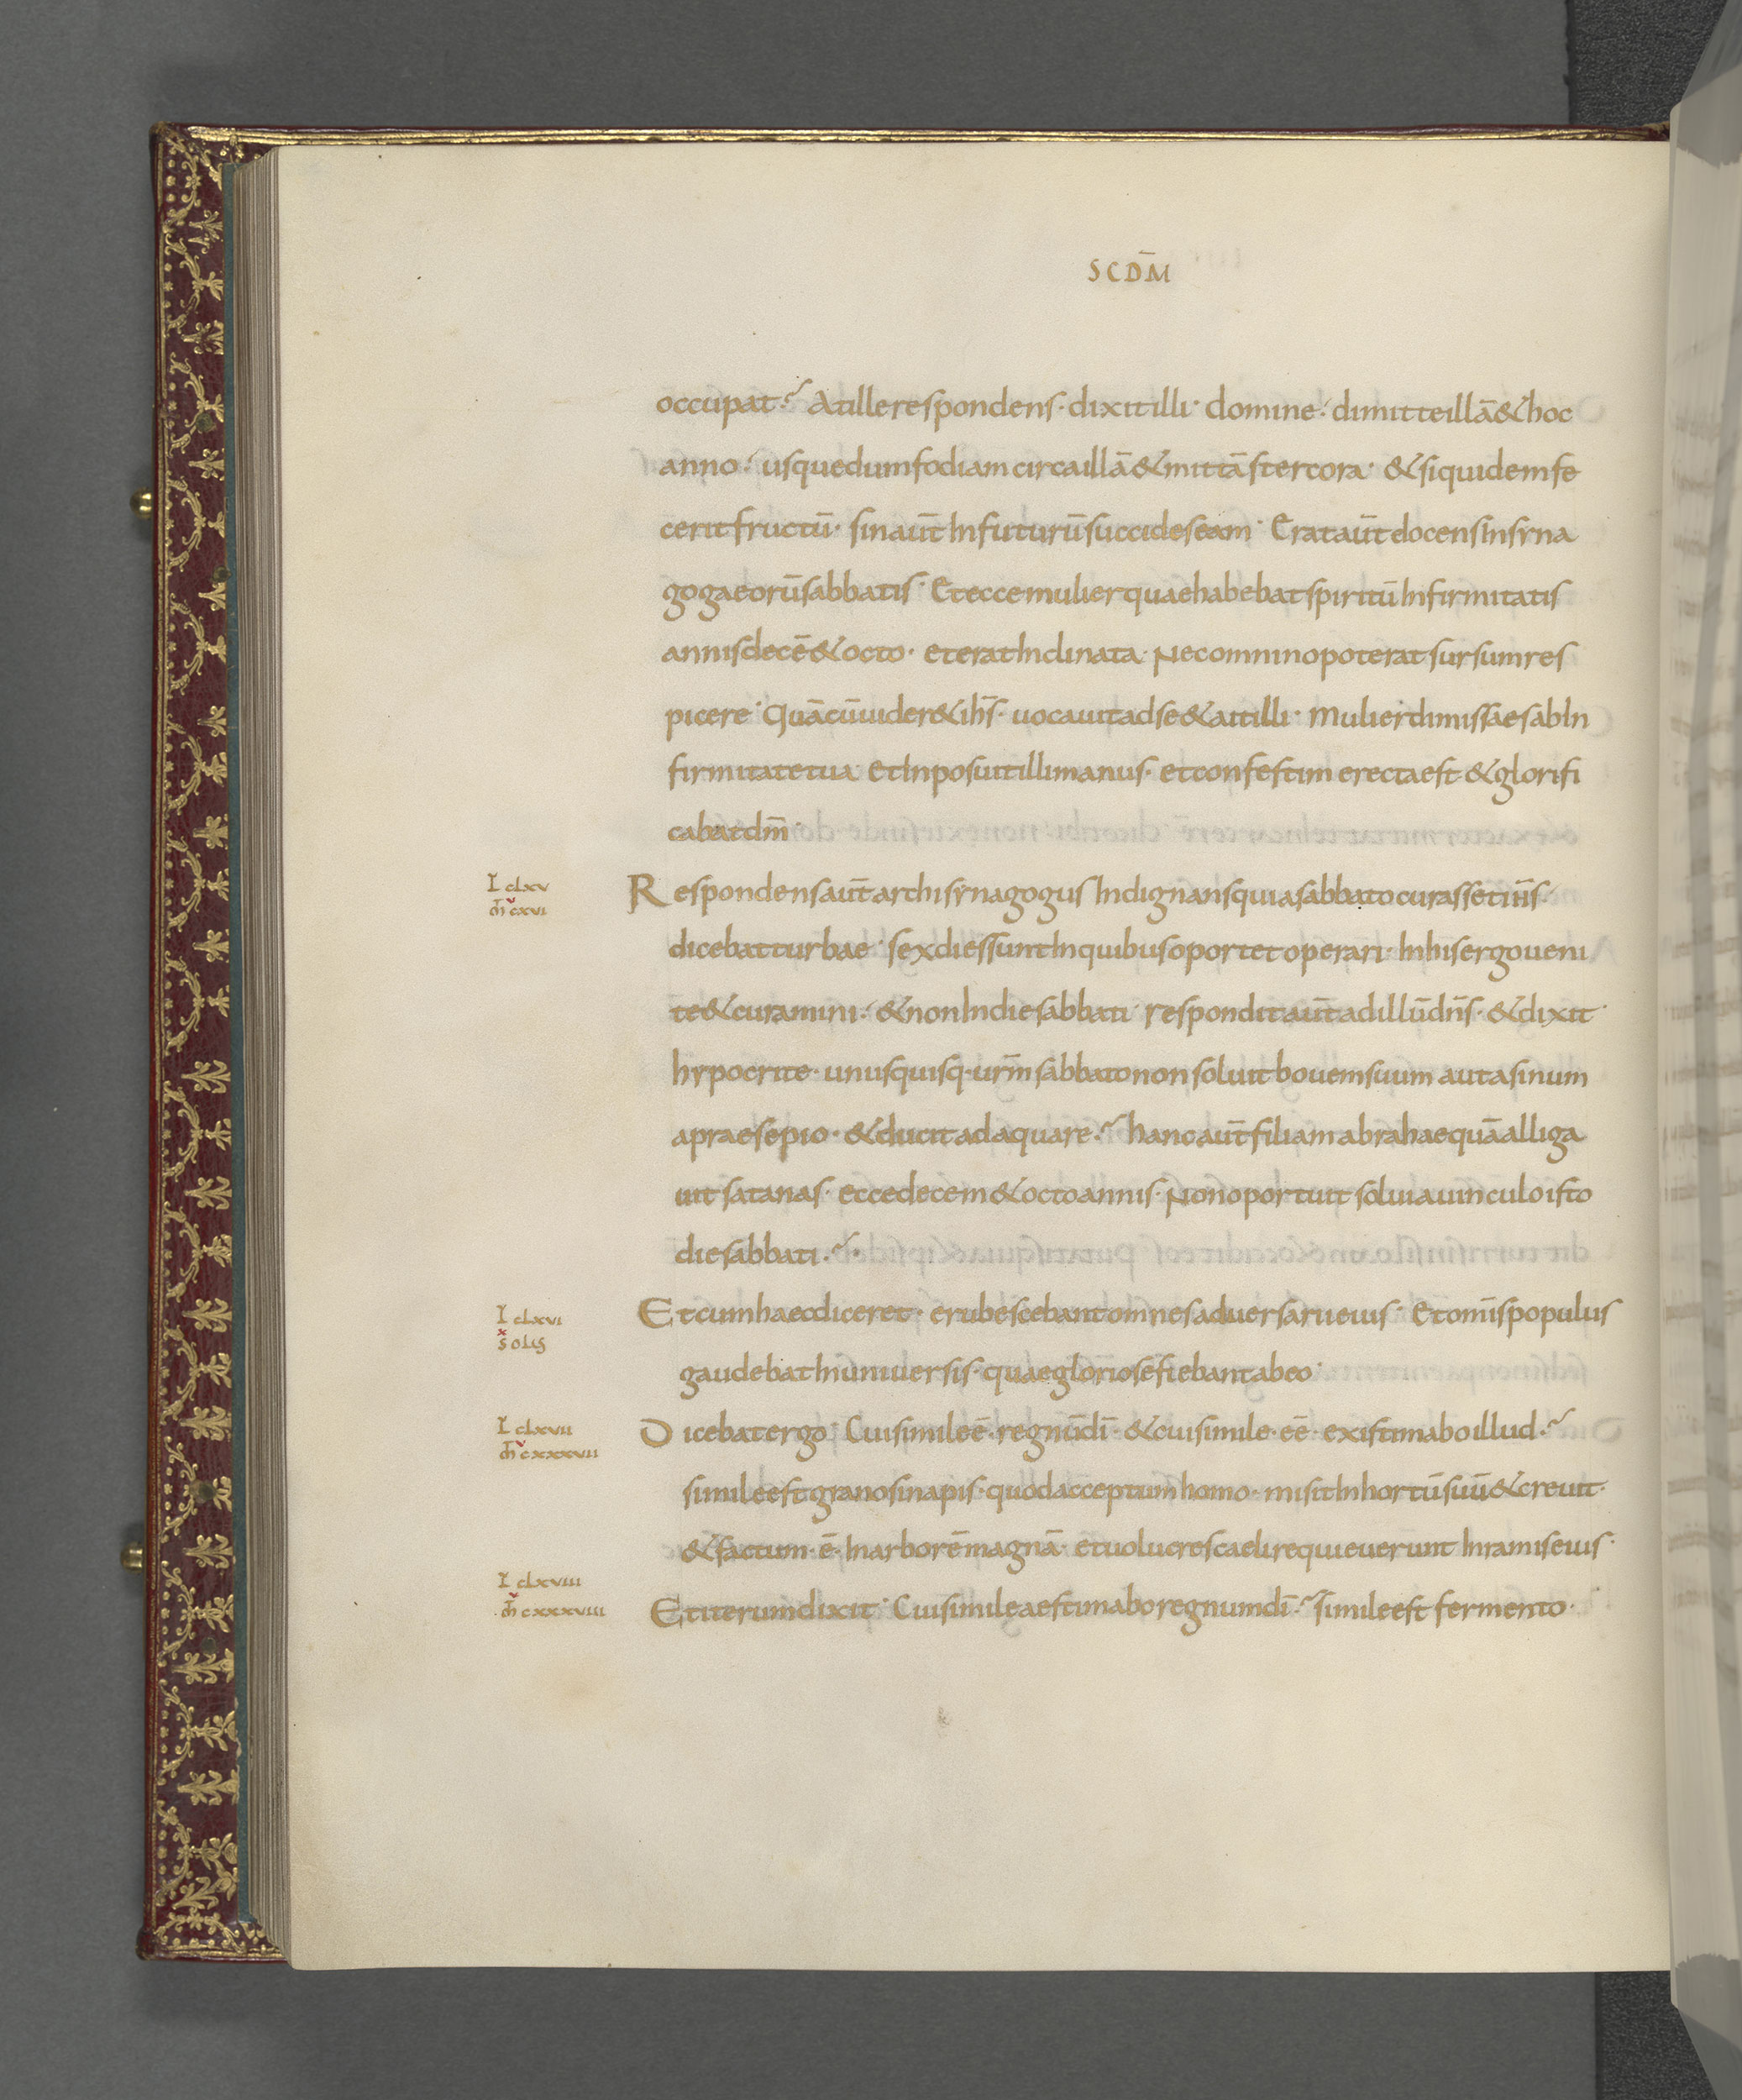 SCDM̄
occupat·? At ille respondens· dixit illi· domine· dimitte illā & hoc
anno· usque dum fodiam circa illā & mittā stercora· & siquidem fe
cerit fructū· sin aūt In futurū succides eam· Erat aūt docens In syna
goga eorū sabbatis· Et ecce mulier quae habebat spiritū Infirmitatis
annis decē & octo· et erat Inclinata· Nec omnino poterat sursum res
picere· Quā cū uider& ih̄s· uocauit ad se & ait illi· Mulier dimissa es ab In
firmitate tua· Et Inposuit illi manus· et confestim erecta est & glorifi
cabat dm̄·
I clxv
m̄ cxvi
Respondens aūt archisynagogus Indignans quia sabbato curasset ih̄s·
dicebat turbae· sex dies sunt In quibus oportet operari· In his ergo ueni
te & curamini· & non In die sabbati· respondit aūt ad illū dn̄s· & dixit·
hypocrite· unusquisq· ur̄m sabbato non soluit bouem suum aut asinum
a praesepio· & ducit adaquare·? hanc aūt filiam abrahae quā alliga
uit satanas· ecce decem & octo annis· Non oportuit solui a uinculo isto
die sabbati·?·
I clxvi
solis
Et cum haec diceret· erubescebant omnes aduersarii eius· Et om̄is populus
gaudebat In uniuersis· quae gloriose fiebant ab eo·
I clxvii
m̄ cxxxvii
Dicebat ergo· Cui simile ē· regnū dī· & cui simile· eē· existimabo illud·?
simile est grano sinapis· quod acceptum homo· misit In hortū suū & creuit·
& factum· ē· In arborē magnā· et uolucres caeli requieuerunt In ramis eius·
I clxviii
m̄ cxxxviii
Et iterum dixit· Cui simile aestimabo regnum dī·? simile est fermento·